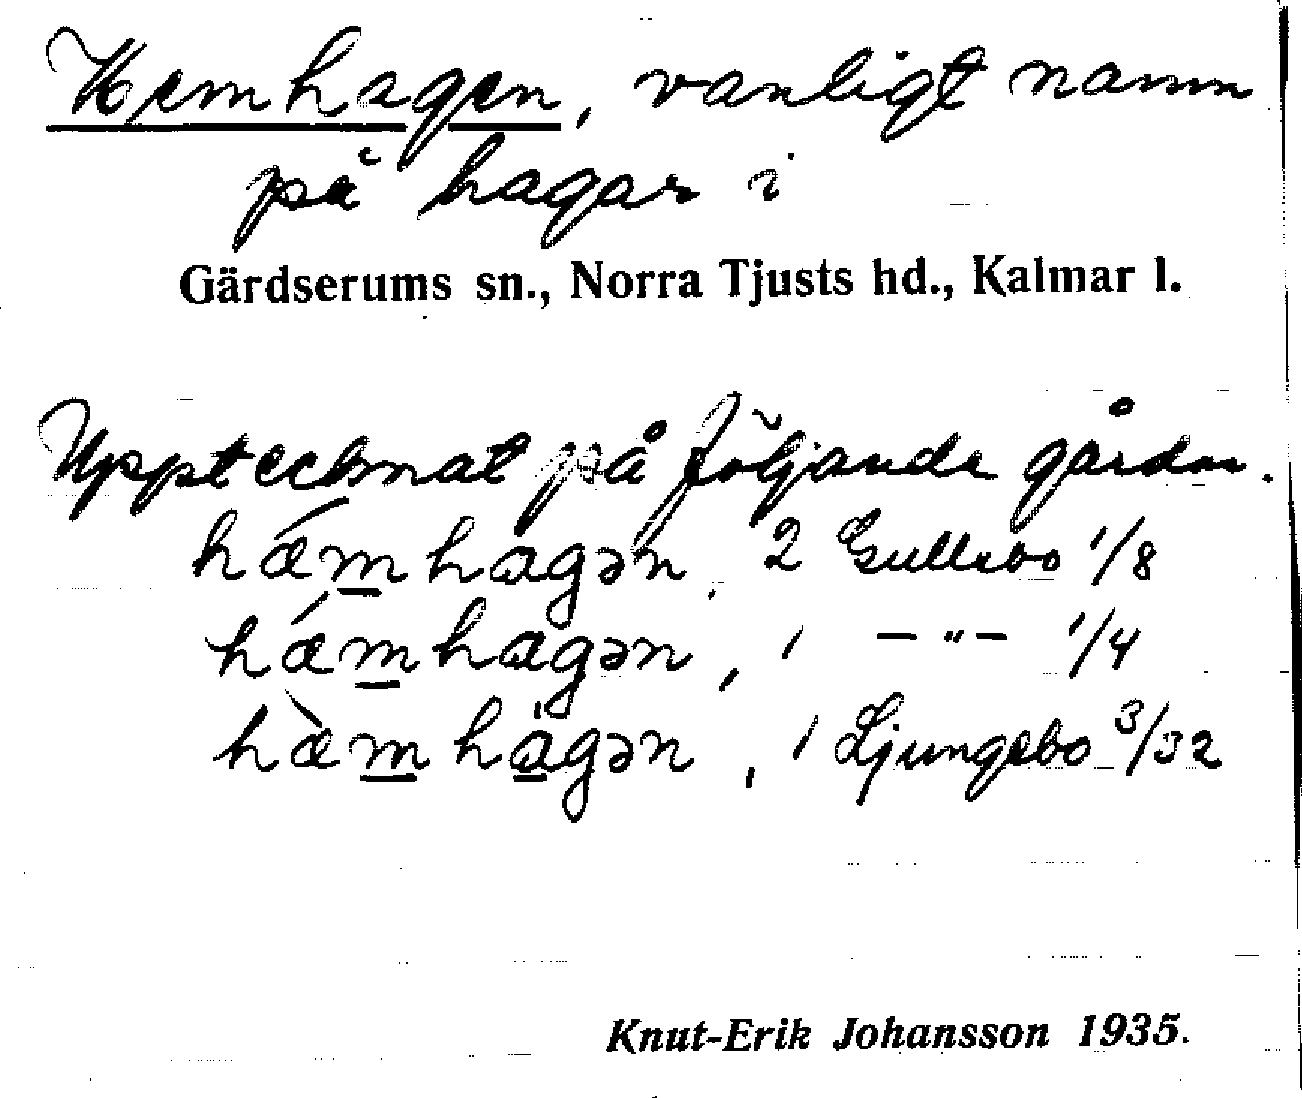 Hemhagen, vanligt namn
på hagar i
Gärdserums sn., Norra Tjusts hd., Kalmar l.
Upptecknat på följande gårdar.
hǽm̲hagən, 2 Gullebo 1/8
hǽm̲hagən, 1 — " — 1/4
hæ̀m̲hӓ̲gən, 1 Ljungebo 3/32
Knut-Erik Johansson 1935.